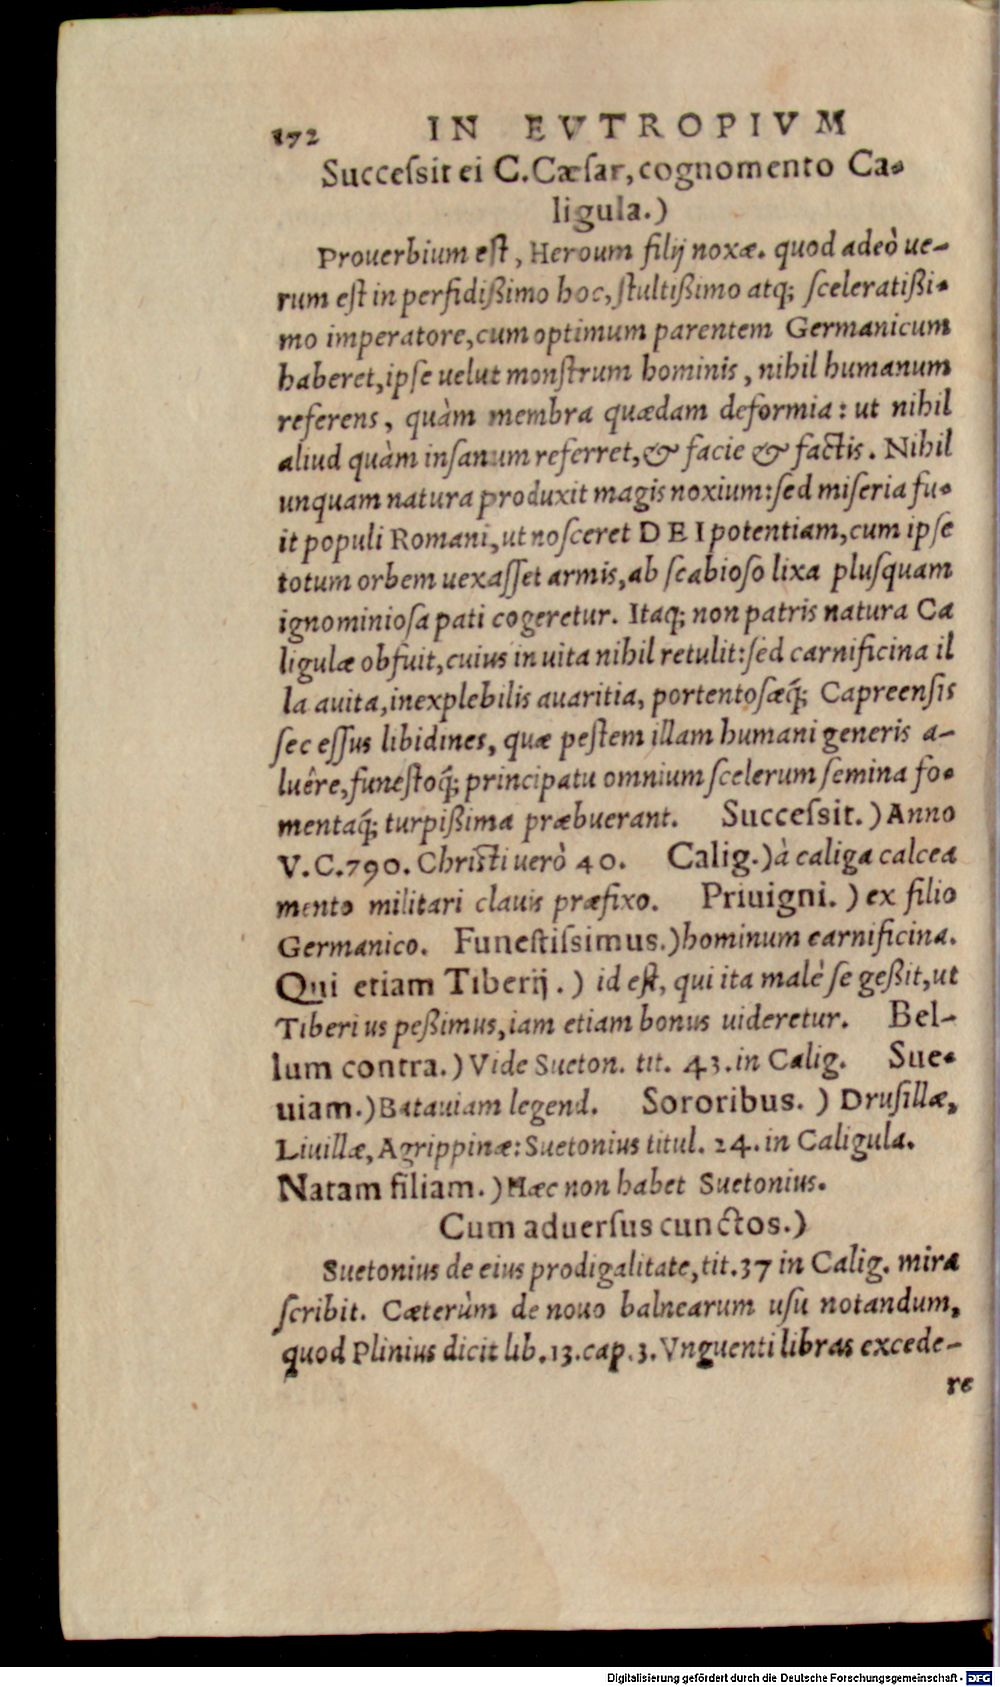 172 IN EVTROPIVM
Succeſsit ei C. Cæſar, cognomento Ca-
ligula.)
Prouerbium eſt, Heroum filij noxæ. quod adeò ue-
rum eſt in perfidißimo hoc, ſtultißimo atq; ſceleratißi-
mo imperatore, cum optimum parentem Germanicum
haberet, ipſe uelut monſtrum hominis, nihil humanum
referens, quàm membra quædam deformia: ut nihil
aliud quàm inſanum referret, & facie & factis. Nihil
unquam natura produxit magis noxium: ſed miſeria fu-
it populi Romani, ut noſceret DEI potentiam, cum ipſe
totum orbem uexaſſet armis, ab ſcabioſo lixa pluſquam
ignominioſa pati cogeretur. Itaq; non patris natura Ca
ligulæ obfuit, cuius in uita nihil retulit: ſed carnificina il
la auita, inexplebilis auaritia, portentoſæq́; Capreenſis
ſeceſſus libidines, quæ peſtem illam humani generis a-
luêre, funeſtoq́; principatu omnium ſcelerum ſemina fo-
mentaq́; turpißima præbuerant. Succeſsit.) Anno
V.C.790. Chriſti uerò 40. Calig.) à caliga calcea
mento militari clauis præfixo. Priuigni.) ex filio
Germanico. Funeſtiſsimus.) hominum carnificina.
Qui etiam Tiberij.) id eſt, qui ita malè ſe geßit, ut
Tiberius peßimus, iam etiam bonus uideretur. Bel-
lum contra.) Vide Sueton. tit. 43. in Calig. Sue-
uiam.) Batauiam legend. Sororibus.) Druſillæ,
Liuillæ, Agrippinæ: Suetonius titul. 24. in Caligula.
Natam filiam.) Hæc non habet Suetonius.
Cum aduerſus cunctos.)
Suetonius de eius prodigalitate, tit. 37 in Calig. mira
ſcribit. Cæterùm de nouo balnearum uſu notandum,
quod Plinius dicit lib. 13. cap. 3. Vnguenti libras excede-
re
Digitalisierung gefördert durch die Deutsche Forschungsgemeinschaft - DFG